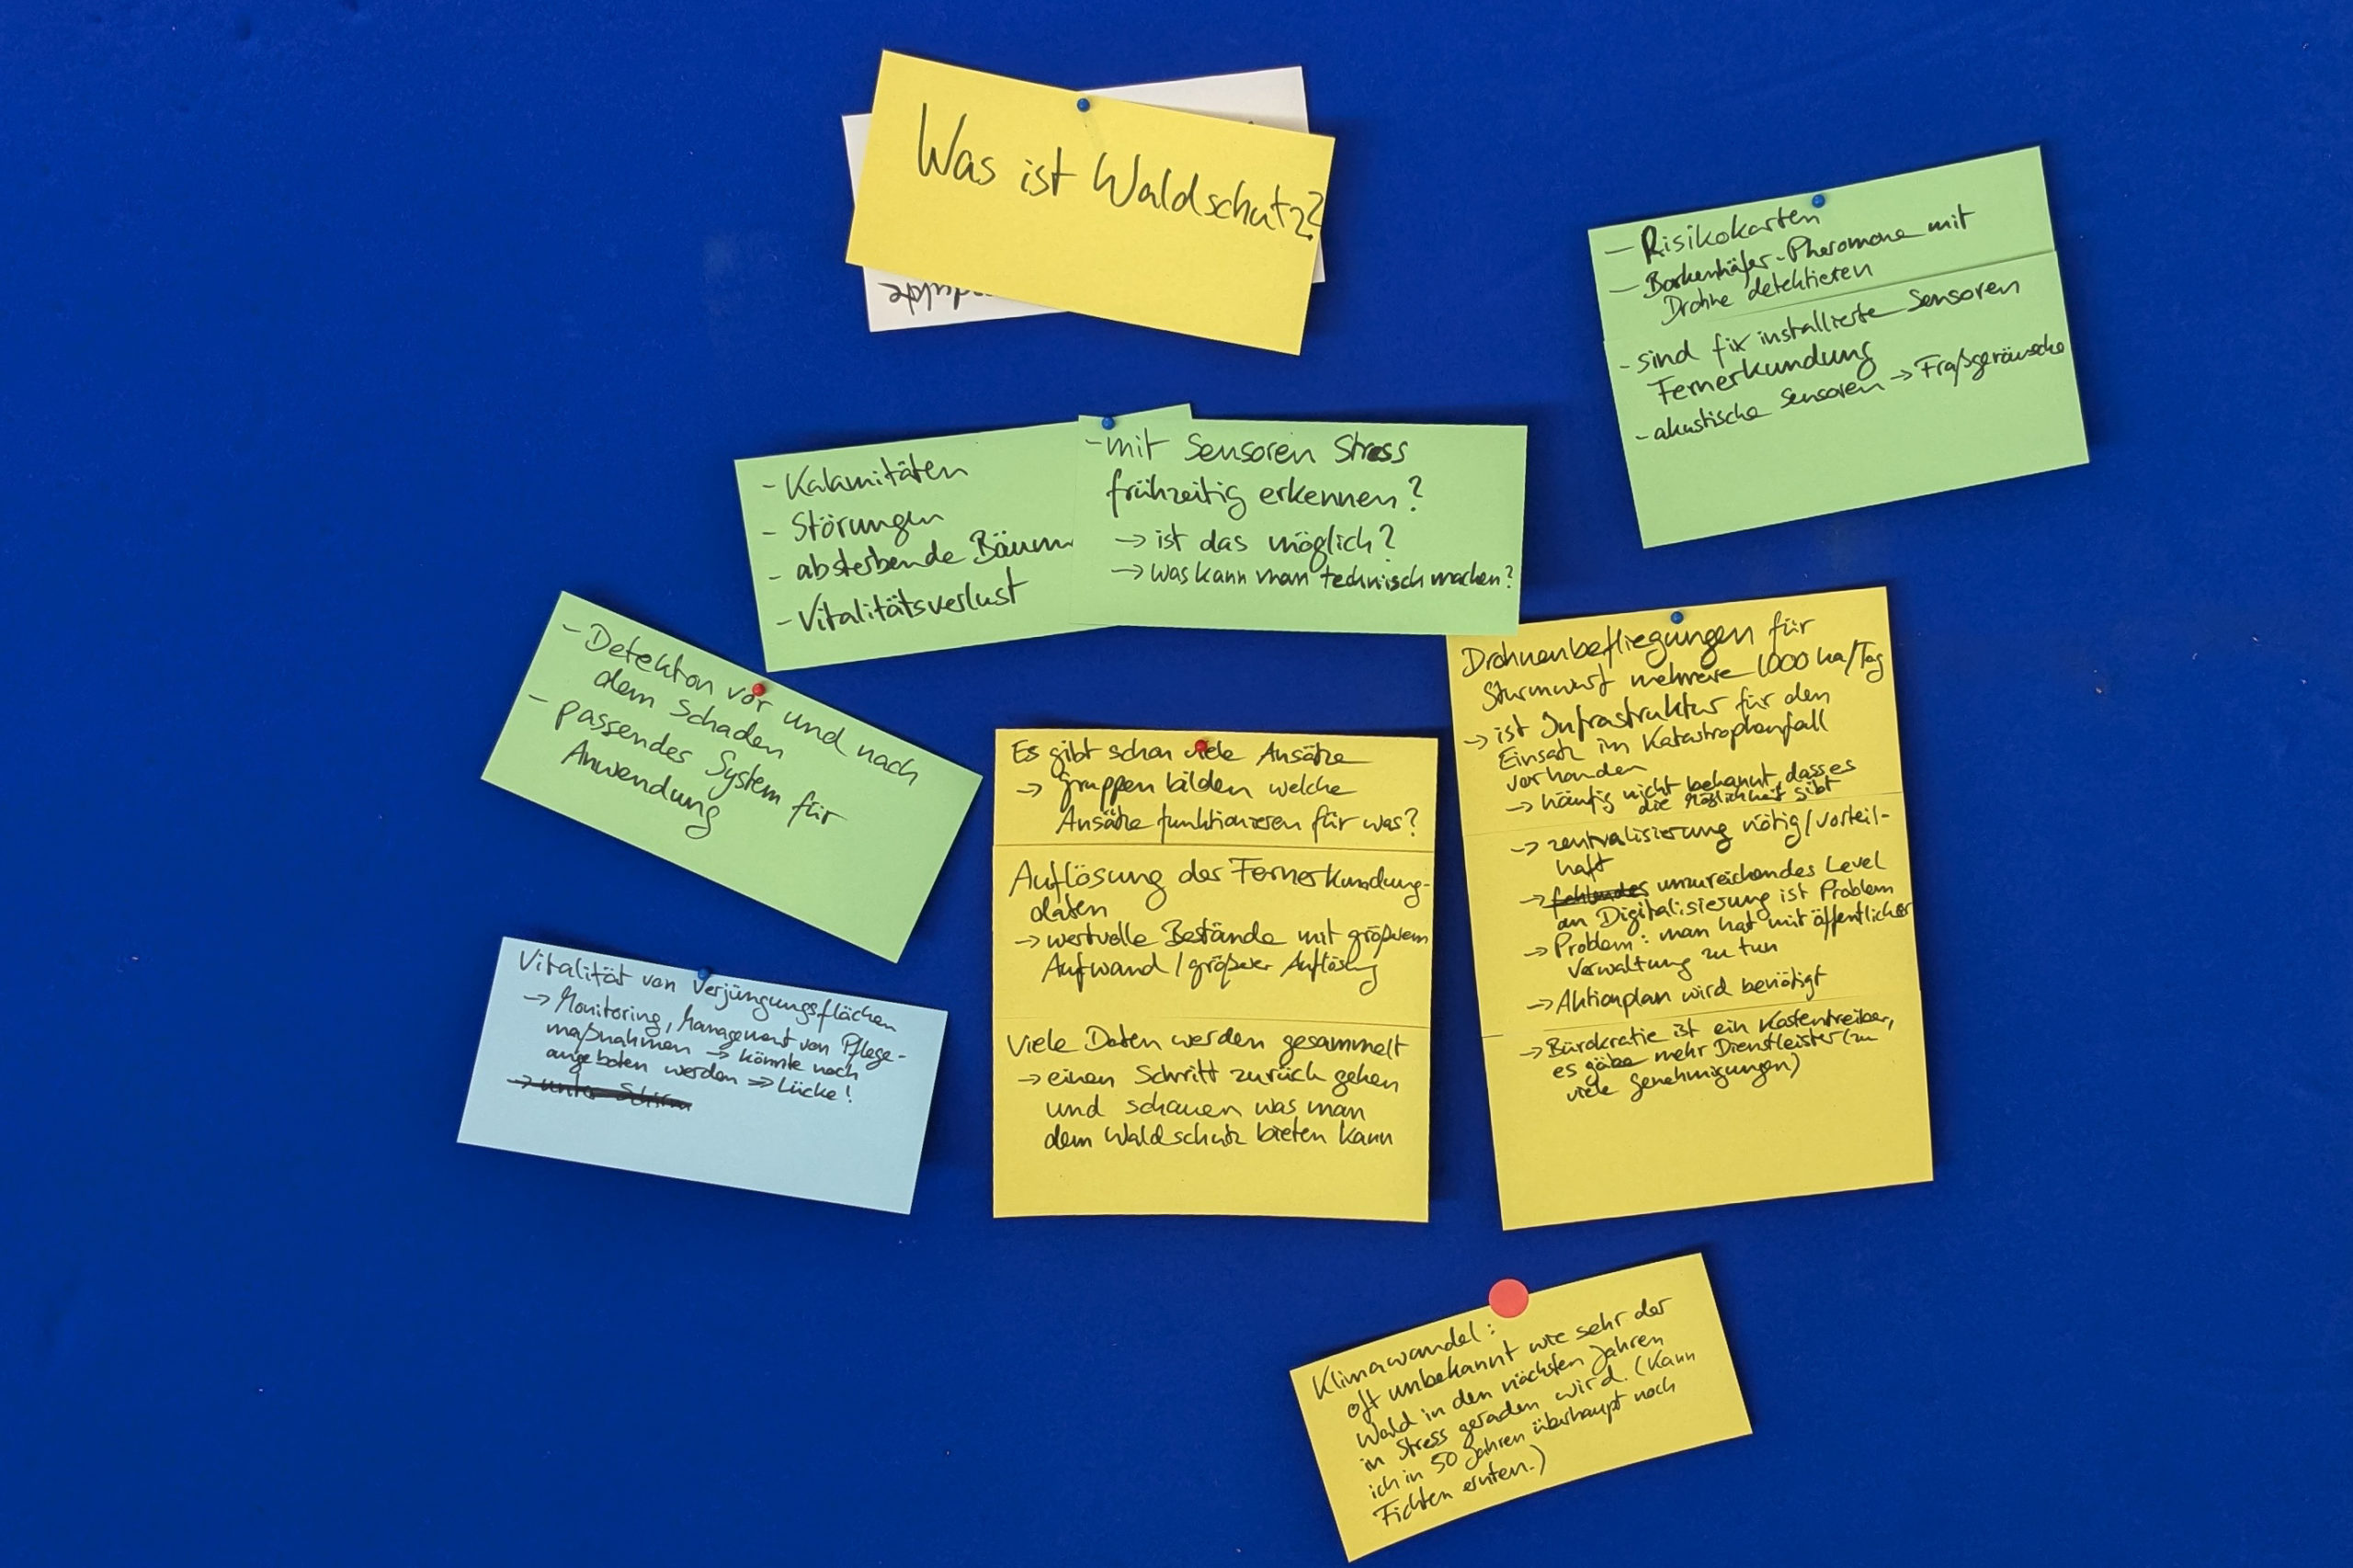 Was ist Waldschutz?
- Risikokarten
- Borkenkäfer-Pheromone mit
Drohne detektieren
- sind fix installierte Sensoren
Fernerkundung
- akustische Sensoren → Fraßgeräusche
- Kalamitäten
- Störungen
- absterbende Bäum
- Vitalitätsverlust
- mit Sensoren Stress
frühzeitig erkennen?
→ ist das möglich?
→ Was kann man technisch machen?
- Detektion vor und nach
dem Schaden
- passendes System für
Anwendung
Vitalität von Verjüngungsflächen
→ Monitoring, Management von Pflege-
maßnahmen → könnte noch
angeboten werden ⇒ Lücke!
→ unter Schirm
Es gibt schon viele Ansätze
→ Gruppen bilden welche
Ansätze funktionieren für was?
Auflösung der Fernerkundung-
daten
→ wertvolle Bestände mit größerem
Aufwand / größer Auflösung
Viele Daten werden gesammelt
→ einen Schritt zurück gehen
und schauen was man
dem Waldschutz bieten kann
Drohnenbefliegungen für
Sturmwurf mehrere 1000 ha/Tag
→ ist Infrastruktur für den
Einsatz im Katastrophenfall
vorhanden
→ häufig nicht bekannt, dass es
die Möglichkeit gibt
→ zentralisierung nötig/vorteil-
haft
→ fehlendes unzureichendes Level
an Digitalisierung ist Problem
→ Problem: man hat mit öffentlicher
Verwaltung zu tun
→ Aktionplan wird benötigt
→ Bürokratie ist ein Kostentreiber,
es gäbe mehr Dienstleister (zu
viele Genehmigungen)
Klimawandel:
oft unbekannt wie sehr der
Wald in den nächsten Jahren
in Stress geraden wird. (Kann
ich in 50 Jahren überhaupt noch
Fichten ernten.)